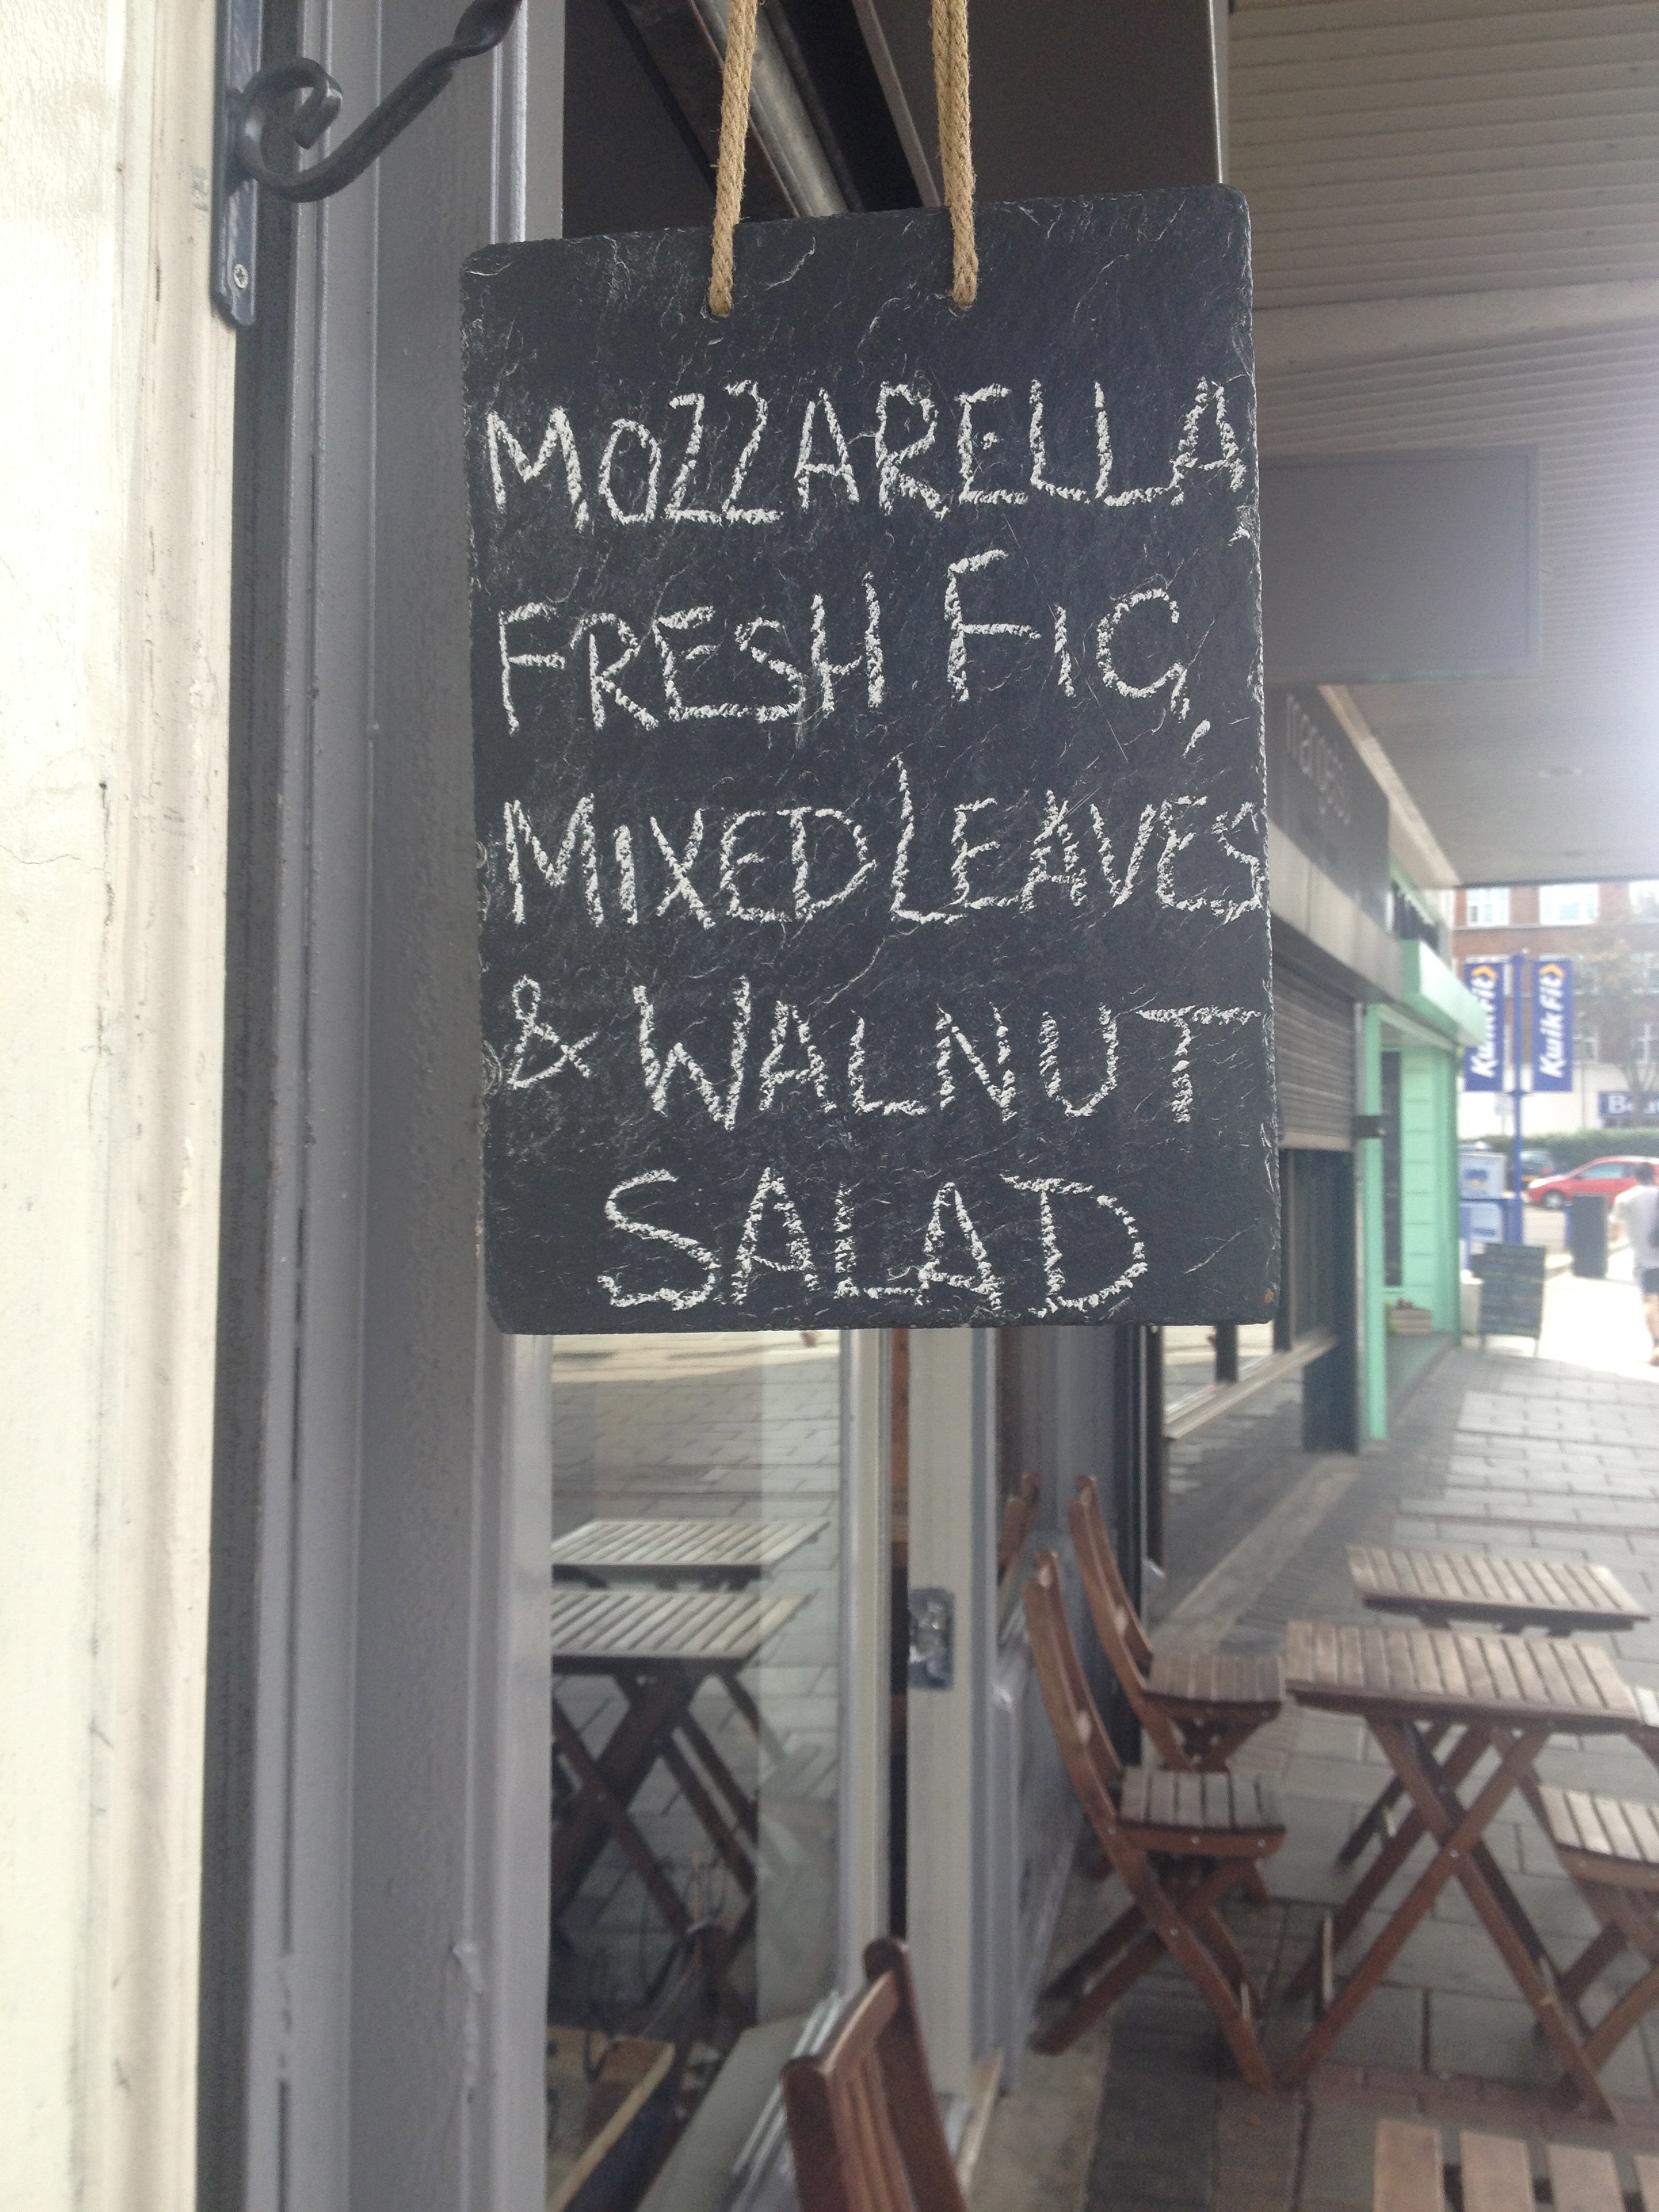 MOZZARELLA,
FRESH FIG,
MIXED LEAVES
& WALNUT
SALAD
manges
Kwik Fit
Kwik Fit